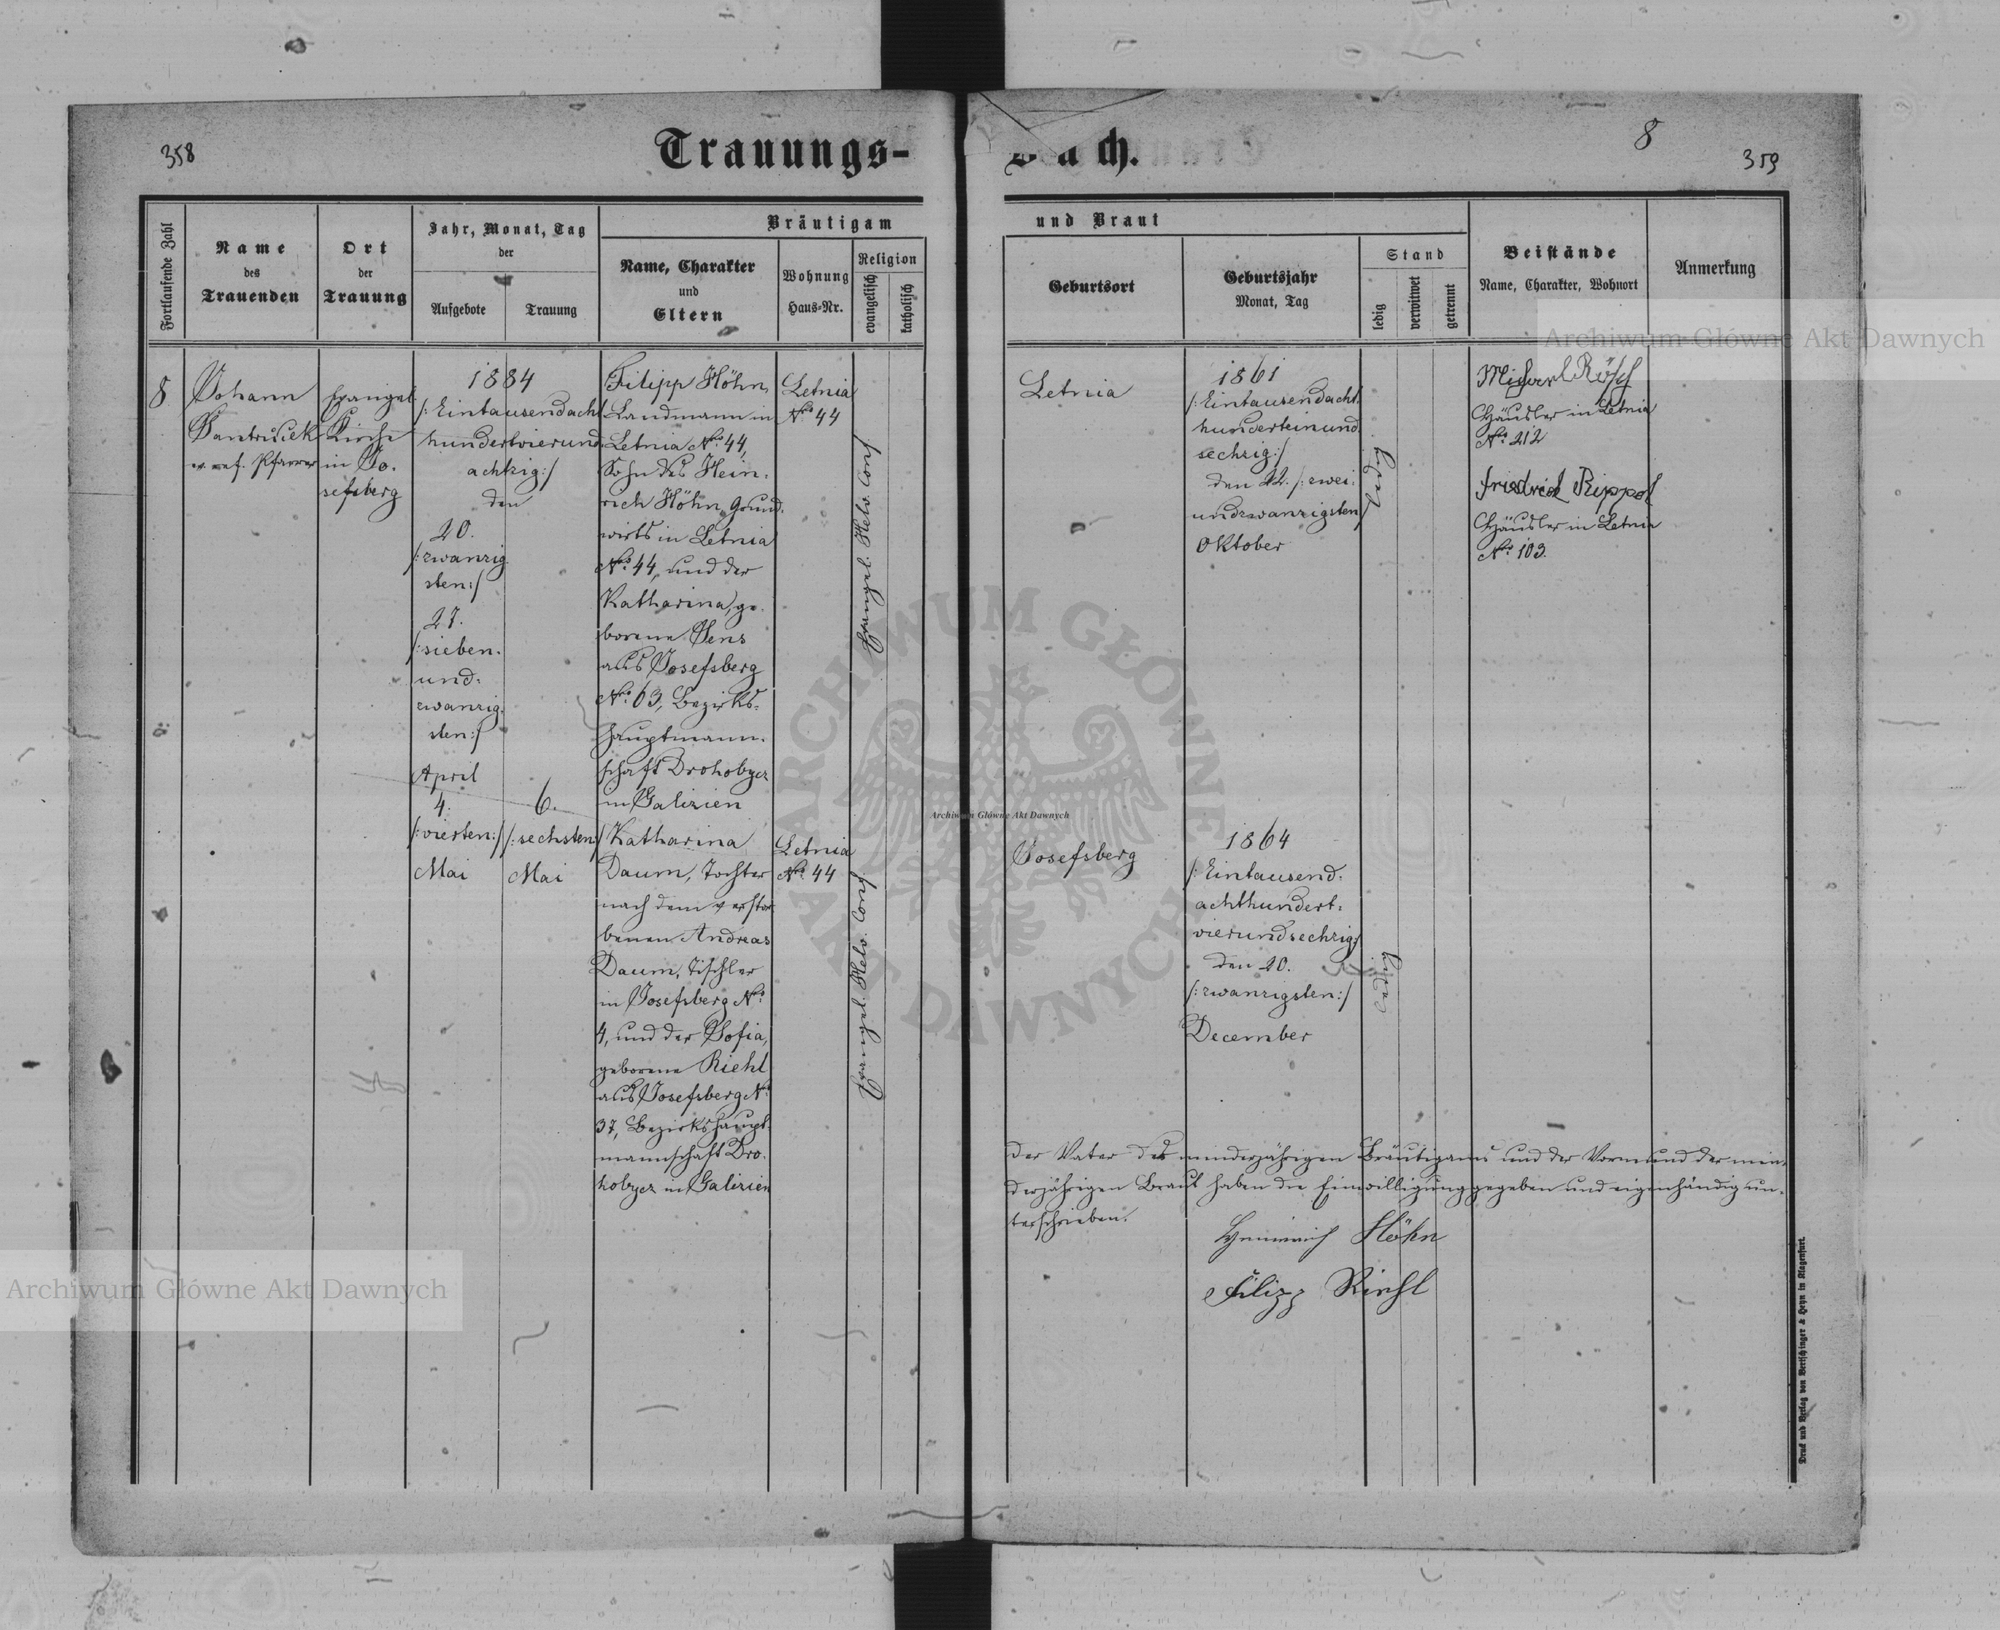 358
Trauungs-
ch.
8
359
Fortlaufende Zahl
Name
des
Trauenden
Ort
der
Trauung
Jahr, Monat, Tag
der
Aufgebote
Trauung
Bräutigam
Name, Charakter
und
Eltern
Wohnung
Haus-Nr.
Religion
evangelisch
katholisch
und Braut
Geburtsort
Geburtsjahr
Monat, Tag
Stand
ledig
verwitwet
getrennt
Beistände
Name, Charakter, Wohnort
Anmerkung
8.
Johann
ev. ref. Pfarrer
Evangel.
Kirche
in Jo-
sefsberg
1884
/: Eintausendacht
hundertvierund
achtzig:/
den
20.
/:zwanzig
sten:/
27.
/:sieben-
und-
zwanzig-
sten:/
April
4.
/:vierten:/
Mai
6.
/:sechsten:/
Mai
Filipp Höhn,
Landmann in
Letnia No. 44,
Sohn des Hein-
rich Höhn, Grund-
wirts in Letnia
No. 44, und der
Katharina, ge-
borene Jens
aus Josefsberg
No. 63, Bezirks-
hauptmann-
schaft Drohobycz
in Galizien
Letnia
No. 44
Evangel. Helv. Conf.
Katharina
Daum, Tochter
nach dem verstor
benen Andreas
Daum, Tischler
in Josefsberg No.
4, und der Sofia,
geborene Riehl
aus Josefsberg No.
37, Bezirkshaupt-
mannschaft Dro-
hobycz in Galizien
Letnia
No. 44
Evangel. Helv. Conf.
Letnia
1861
/: Eintausendacht-
hunderteinund
sechzig:/
den 22. /: zwei-
undzwanzigsten:/
Oktober
ledig
Michael Rösch
Häusler in Letnia
No. 212
Friedrich Rippel
Häusler in Letnia
No. 103.
Josefsberg
1864
/: Eintausend-
achthundert-
vierundsechzig:/
den 20.
/: zwanzigsten:/
December
ledig
Der Vater des minderjährigen Bräutigams und der Vormund der min-
derjährigen Braut haben die Einwilligung gegeben und eigenhändig un-
terschrieben.
Heinrich Höhn
Filipp Riehl
Druck und Verlag von Bertschinger & Heyn in Klagenfurt.
Archiwum Główne Akt Dawnych
ARCHIWUM GŁÓWNE
AKT DAWNYCH
Archiwum Główne Akt Dawnych
Archiwum Główne Akt Dawnych